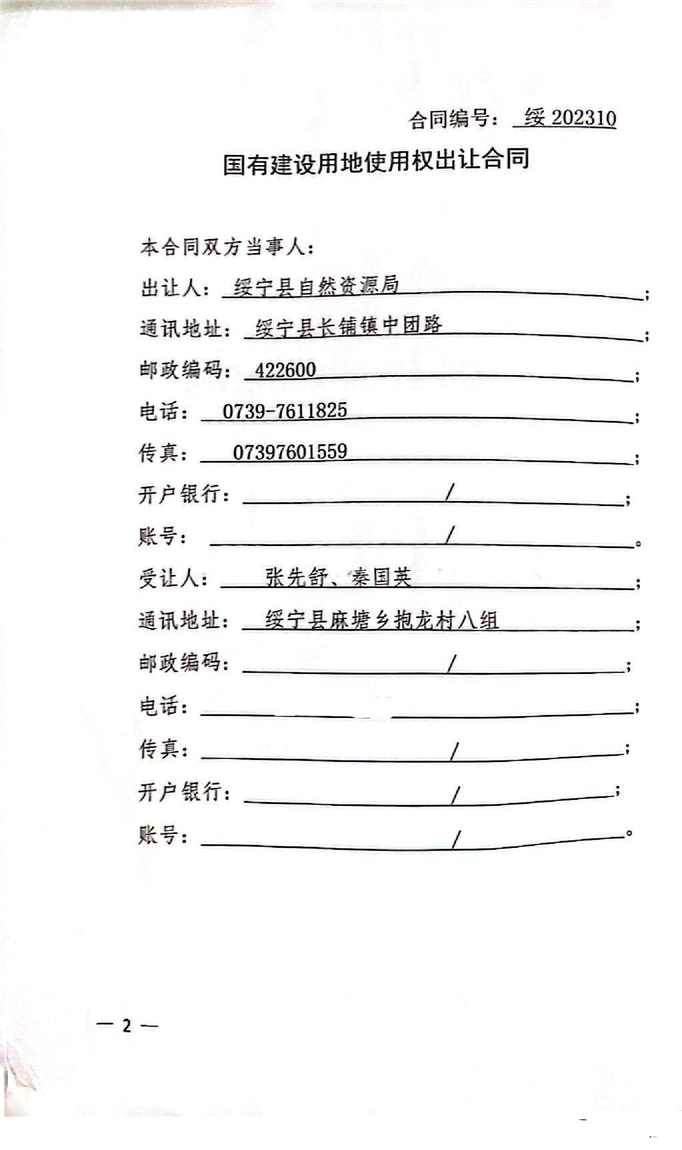 合同编号：绥 202310
国有建设用地使用权出让合同
本合同双方当事人：
出让人：绥宁县自然资源局；
通讯地址：绥宁县长铺镇中团路；
邮政编码：422600；
电话：0739-7611825；
传真：07397601559；
开户银行：/；
账号：/。
受让人：张先舒、秦国英；
通讯地址：绥宁县麻塘乡抱龙村八组；
邮政编码：/；
电话：；
传真：/；
开户银行：/；
账号：/。
— 2 —